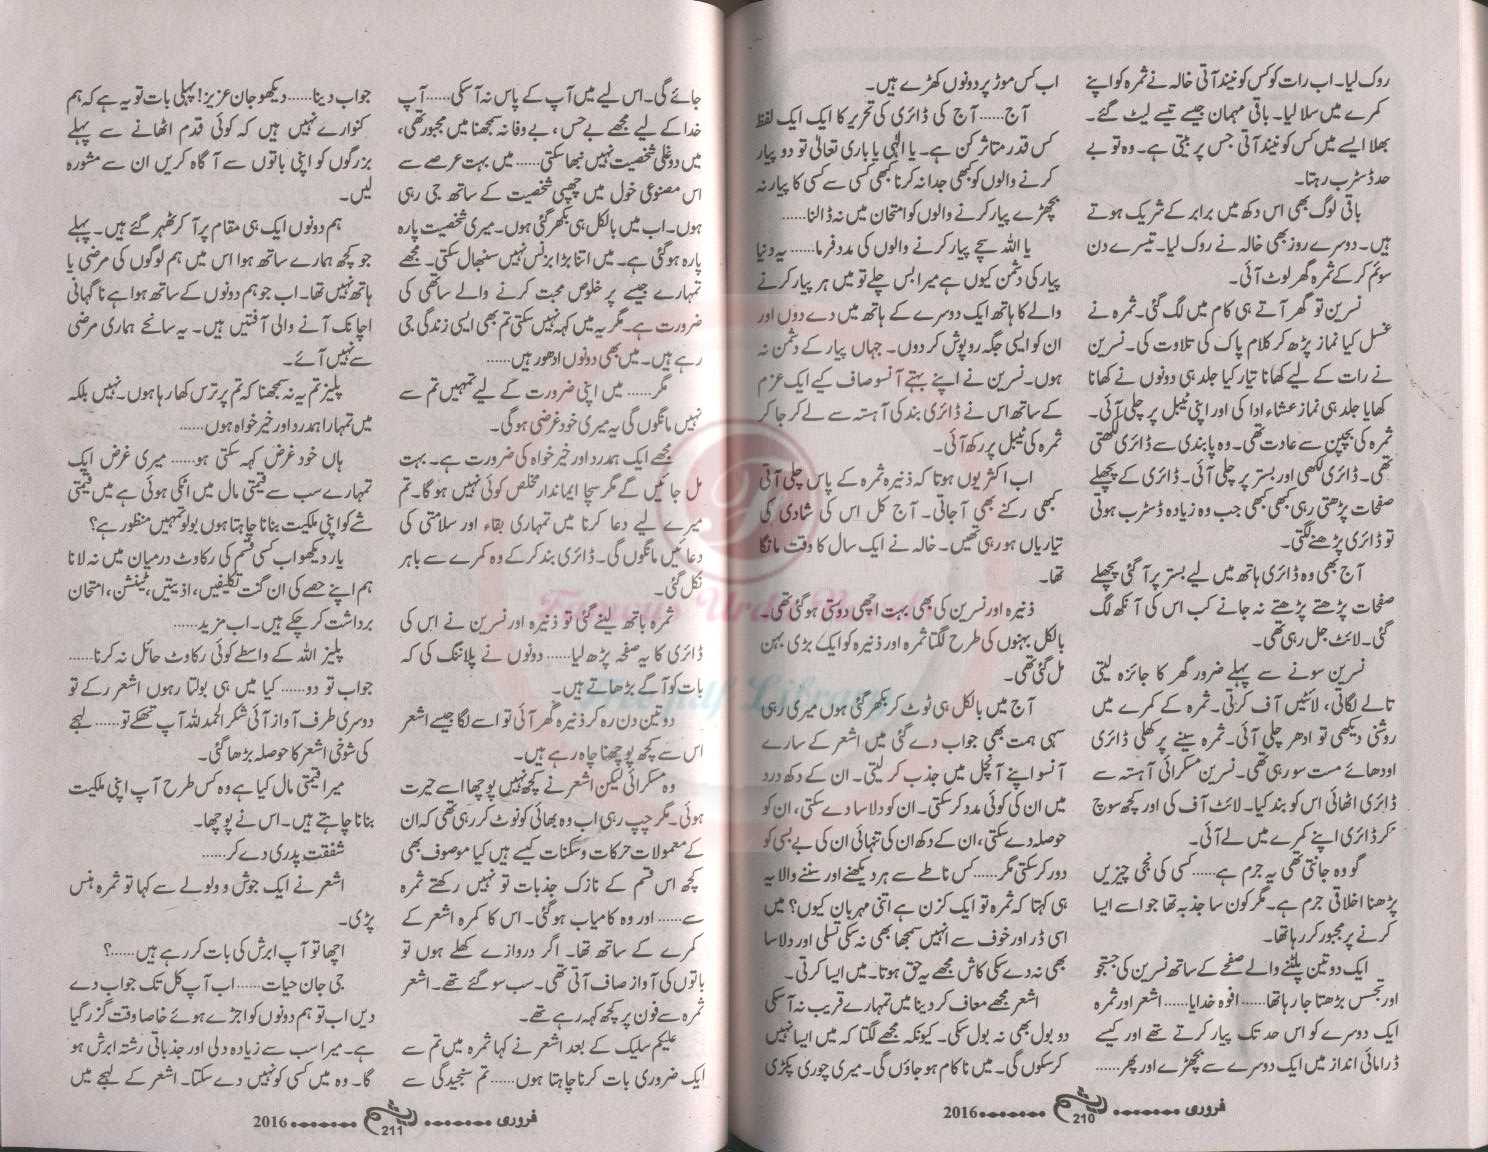 روک لیا۔ اب رات کو کس کو نیند آتی خالہ نے ثمرہ کو اپنے
کمرے میں سلا لیا۔ باقی مہمان جیسے تیسے لیٹ گئے۔
بھلا ایسے میں کس کو نیند آتی جس پر بیتی ہے۔ وہ تو بے
حد ڈسٹرب رہتا۔
باقی لوگ بھی اس دکھ میں برابر کے شریک ہوتے
ہیں۔ دوسرے روز بھی خالہ نے روک لیا۔ تیسرے دن
سوئم کر کے ثمرہ گھر لوٹ آئی۔
نسرین تو گھر آتے ہی کام میں لگ گئی۔ ثمرہ نے
غسل کیا نماز پڑھ کر کلام پاک کی تلاوت کی۔ نسرین
نے رات کے لیے کھانا تیار کیا جلد ہی دونوں نے کھانا
کھایا جلد ہی نماز عشاء ادا کی اور اپنی ٹیبل پر چلی آئی۔
ثمرہ کی بچپن سے عادت تھی۔ وہ پابندی سے ڈائری لکھتی
تھی۔ ڈائری لکھی اور بستر پر چلی آئی۔ ڈائری کے پچھلے
صفحات پڑھتی رہی کبھی کبھی جب وہ زیادہ ڈسٹرب ہوتی
تو ڈائری پڑھنے لگتی۔
آج بھی وہ ڈائری ہاتھ میں لیے بستر پر آ گئی پچھلے
صفحات پڑھتے پڑھتے نہ جانے کب اس کی آنکھ لگ
گئی۔ لائٹ جل رہی تھی۔
نسرین سونے سے پہلے ضرور گھر کا جائزہ لیتی
تالے لگاتی، لائٹیں آف کرتی۔ ثمرہ کے کمرے میں
روشنی دیکھی تو ادھر چلی آئی۔ ثمرہ سینے پر کھلی ڈائری
اودھائے مست سو رہی تھی۔ نسرین مسکرائی آہستہ سے
ڈائری اٹھائی اس کو بند کیا۔ لائٹ آف کی اور کچھ سوچ
کر ڈائری اپنے کمرے میں لے آئی۔
گو وہ جانتی تھی یہ جرم ہے...... کسی کی نجی چیزیں
پڑھنا اخلاقی جرم ہے۔ مگر کون سا جذبہ تھا جو اسے ایسا
کرنے پر مجبور کر رہا تھا۔
ایک دو تین پلٹنے والے صفحے کے ساتھ نسرین کی جستجو
اور تجسس بڑھتا جا رہا تھا...... افوہ خدایا...... اشعر اور ثمرہ
ایک دوسرے کو اس حد تک پیار کرتے تھے اور کیسے
ڈرامائی انداز میں ایک دوسرے سے بچھڑے اور پھر......
اب کس موڑ پر دونوں کھڑے ہیں۔
آج...... آج کی ڈائری کی تحریر کا ایک ایک لفظ
کس قدر متاثر کن ہے۔ یا الٰہی یا باری تعالیٰ تو دو پیار
کرنے والوں کو کبھی جدا نہ کرنا کبھی کسی سے کسی کا پیار نہ
بچھڑے پیار کرنے والوں کو امتحان میں نہ ڈالنا......
یا اللہ سچے پیار کرنے والوں کی مدد فرما...... یہ دنیا
پیار کی دشمن کیوں ہے میرا بس چلے تو میں ہر پیار کرنے
والے کا ہاتھ ایک دوسرے کے ہاتھ میں دے دوں اور
ان کو ایسی جگہ روپوش کر دوں۔ جہاں پیار کے دشمن نہ
ہوں۔ نسرین نے اپنے بہتے آنسو صاف کیے ایک عزم
کے ساتھ اس نے ڈائری بند کی آہستہ سے لے کر جا کر
ثمرہ کی ٹیبل پر رکھ آئی۔
اب اکثر یوں ہوتا کہ ذنیرہ ثمرہ کے پاس چلی آتی
کبھی رکنے بھی آ جاتی۔ آج کل اس کی شادی کی
تیاریاں ہو رہی تھیں۔ خالہ نے ایک سال کا وقت مانگا
تھا۔
ذنیرہ اور نسرین کی بھی بہت اچھی دوستی ہو گئی تھی۔
بالکل بہنوں کی طرح لگتا ثمرہ اور ذنیرہ کو ایک بڑی بہن
مل گئی تھی۔
آج میں بالکل ہی ٹوٹ کر بکھر گئی ہوں میری رہی
سہی ہمت بھی جواب دے گئی میں اشعر کے سارے
آنسو اپنے آنچل میں جذب کر لیتی۔ ان کے دکھ درد
میں ان کی کوئی مدد کر سکتی۔ ان کو دلاسا دے سکتی، ان کو
حوصلہ دے سکتی، ان کے دکھ ان کی تنہائی ان کی بے بسی کو
دور کر سکتی مگر...... کس ناطے سے ہر دیکھنے اور سننے والا یہ
ہی کہتا کہ ثمرہ تو ایک کزن ہے اتنی مہربان کیوں؟ میں
اسی ڈر اور خوف سے انہیں سمجھا بھی نہ سکی تسلی اور دلاسا
بھی نہ دے سکی کاش مجھے یہ حق ہوتا۔ میں ایسا کرتی۔
اشعر مجھے معاف کر دینا میں تمہارے قریب نہ آ سکی
دو بول بھی نہ بول سکی۔ کیونکہ مجھے لگتا کہ میں ایسا نہیں
کر سکوں گی۔ میں ناکام ہو جاؤں گی۔ میری چوری پکڑی
فروری ........ 210 ........ 2016
جائے گی۔ اس لیے میں آپ کے پاس نہ آ سکی...... آپ
خدا کے لیے مجھے بے حس، بے وفا نہ سمجھنا میں مجبور تھی،
میں دوغلی شخصیت نہیں نبھا سکتی...... میں بہت عرصے سے
اس مصنوعی خول میں چھپی شخصیت کے ساتھ جی رہی
ہوں۔ اب میں بالکل ہی بکھر گئی ہوں۔ میری شخصیت پارہ
پارہ ہو گئی ہے۔ میں اتنا بڑا بزنس نہیں سنبھال سکتی۔ مجھے
تمہارے جیسے پر خلوص محبت کرنے والے ساتھی کی
ضرورت ہے۔ مگر یہ میں کہہ نہیں سکتی تم بھی ایسی زندگی جی
رہے ہیں۔ میں بھی دونوں ادھور ہیں......
مگر...... میں اپنی ضرورت کے لیے تمہیں تم سے
نہیں مانگوں گی یہ میری خود غرضی ہو گی۔
مجھے ایک ہمدرد اور خیر خواہ کی ضرورت ہے۔ بہت
مل جائیں گے مگر سچا ایماندار مخلص کوئی نہیں ہو گا۔ تم
میرے لیے دعا کرنا میں تمہاری بقاء اور سلامتی کی
دعائیں مانگوں گی۔ ڈائری بند کر کے وہ کمرے سے باہر
نکل گئی۔
ثمرہ باتھ لینے گئی تو ذنیرہ اور نسرین نے اس کی
ڈائری کا یہ صفحہ پڑھ لیا...... دونوں نے پلاننگ کی کہ
بات کو آگے بڑھاتے ہیں۔
دو تین دن رہ کر ذنیرہ گھر آئی تو اسے لگا جیسے اشعر
اس سے کچھ پوچھنا چاہ رہے ہیں۔
وہ مسکرائی لیکن اشعر نے کچھ نہیں پوچھا اسے حیرت
ہوئی۔ مگر چپ رہی اب وہ بھائی کو نوٹ کر رہی تھی کہ ان
کے معمولات حرکات و سکنات کیسے ہیں کیا موصوف بھی
کچھ اس قسم کے نازک جذبات تو نہیں رکھتے ثمرہ
سے...... اور وہ کامیاب ہو گئی۔ اس کا کمرہ اشعر کے
کمرے کے ساتھ تھا۔ اگر دروازے کھلے ہوں تو
باتوں کی آواز صاف آتی تھی۔ سب سو گئے تھے۔ اشعر
ثمرہ سے فون پر کچھ کہہ رہے تھے۔
علیکم سلیک کے بعد اشعر نے کہا ثمرہ میں تم سے
ایک ضروری بات کرنا چاہتا ہوں...... تم سنجیدگی سے
جواب دینا...... دیکھو جان عزیز! پہلی بات تو یہ ہے کہ ہم
کنوارے نہیں ہیں کہ کوئی قدم اٹھانے سے پہلے
بزرگوں کو اپنی باتوں سے آگاہ کریں ان سے مشورہ
لیں۔
ہم دونوں ایک ہی مقام پر آ کر ٹھہر گئے ہیں۔ پہلے
جو کچھ ہمارے ساتھ ہوا اس میں ہم لوگوں کی مرضی یا
ہاتھ نہیں تھا۔ اب جو ہم دونوں کے ساتھ ہوا ہے ناگہانی
اچانک آنے والی آفتیں ہیں۔ یہ سانحے ہماری مرضی
سے نہیں آئے۔
پلیز تم یہ نہ سمجھنا کہ تم پر ترس کھا رہا ہوں۔ نہیں بلکہ
میں تمہارا ہمدرد اور خیر خواہ ہوں......
ہاں خود غرض کہہ سکتی ہو...... میری غرض ایک
تمہارے سب سے قیمتی مال میں اٹکی ہوئی ہے میں قیمتی
شے کو اپنی ملکیت بنانا چاہتا ہوں بولو تمہیں منظور ہے؟
یار دیکھو اب کسی قسم کی رکاوٹ درمیان میں نہ لانا
ہم اپنے حصے کی ان گنت تکلیفیں، اذیتیں، ٹینشن، امتحان
برداشت کر چکے ہیں۔ اب مزید......
پلیز اللہ کے واسطے کوئی رکاوٹ حائل نہ کرنا......
جواب تو دو...... کیا میں ہی بولتا رہوں اشعر رکے تو
دوسری طرف آواز آئی شکر الحمد للہ آپ تھکے تو...... لہجے
کی شوخی اشعر کا حوصلہ بڑھا گئی۔
میرا قیمتی مال کیا ہے وہ کس طرح آپ اپنی ملکیت
بنانا چاہتے ہیں۔ اس نے پوچھا۔
شفقت پدری دے کر......
اشعر نے ایک جوش و ولولے سے کہا تو ثمرہ ہنس
پڑی۔
اچھا تو آپ ابرش کی بات کر رہے ہیں......؟
جی جان حیات...... اب آپ کل تک جواب دے
دیں اب تو ہم دونوں کو اجڑے ہوئے خاصا وقت گزر گیا
ہے۔ میرا سب سے زیادہ دلی اور جذباتی رشتہ ابرش ہو
گا۔ وہ میں کسی کو نہیں دے سکتا۔ اشعر کے لہجے میں
فروری ........ 211 ........ 2016